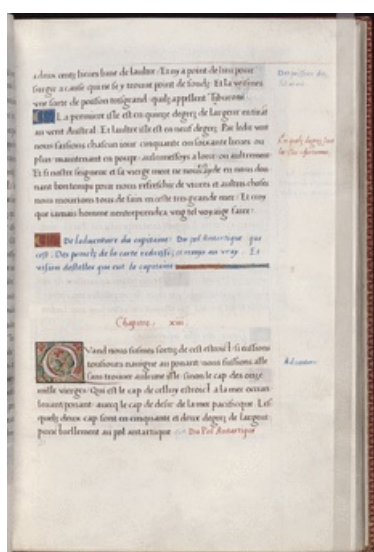 a deux centz lieues lune de laultre Et ny a point de lieu pour
surgir a cause qui ne se y trouve point de fondz Et la veismes
une sorte de poisson tresgrand quelz appellent Tiburoni
La premiere isle est en quinze degrez de largeur en tirāt
au vent Austral Et laultre isle est en neuf degrez Par ledit vent
nous faisions chascun jour cinquante ou soixante lieues ou
plus maintenant en pouppe aulcunesfoys a lorce ou aultrement
Et si nostre seigneur et sa vierge mere ne nous eussent ayde en nous don
nant bon temps pour nous refreschir de vivres et aultres choses
nous mourions tous de faim en ceste tresgrande mer Et croy
que jamais homme nentreprendra ung tel voyaige faire
De laduenture du capitaine Du pol Antartique que
cest Des pointz de la carte
vision destoilles que eut le capitaine
Chapitre xiii
Quand nous fusmes sortiz de cest estroict si eussions
tousiours navigue au ponant nous fussions alle
sans trouver aulcune isle sinon le cap des onze
mille vierges Qui est le cap de celluy estroict a la mer oceane
levant ponant avecq le cap de desir de la mer pacificque Les
quelz deux cap sont en cinquante et deux degrez de largeur
pour bellement au pol antartique Du Pol Antartique
Des poissons dictz
Tiburoni
En quelz degrez sont
les isles
Aduenture